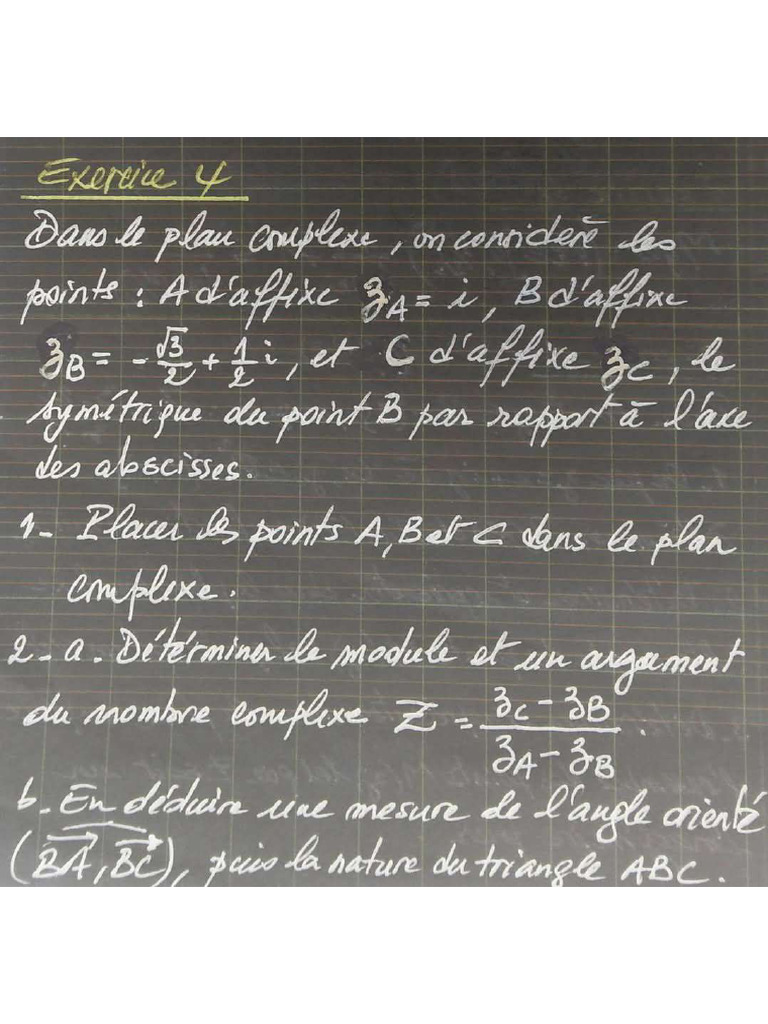 Exercice 4
Dans le plan complexe, on considère les
points : A d'affixe z_A = i, B d'affixe
z_B = -√3/2 + 1/2 i, et C d'affixe z_C, le
symétrique du point B par rapport à l'axe
des abscisses.
1- Placer les points A, B et C dans le plan
complexe.
2- a. Déterminer le module et un argument
du nombre complexe Z = (z_C - z_B)/(z_A - z_B).
b. En déduire une mesure de l'angle orienté
(BA, BC), puis la nature du triangle ABC.